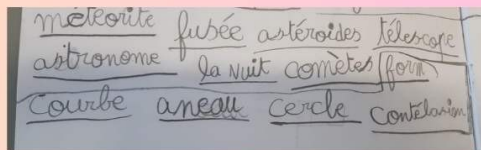 météorite fusée astéroides télescope
astronome la Nuit comètes form
courbe aneau cercle contelasion